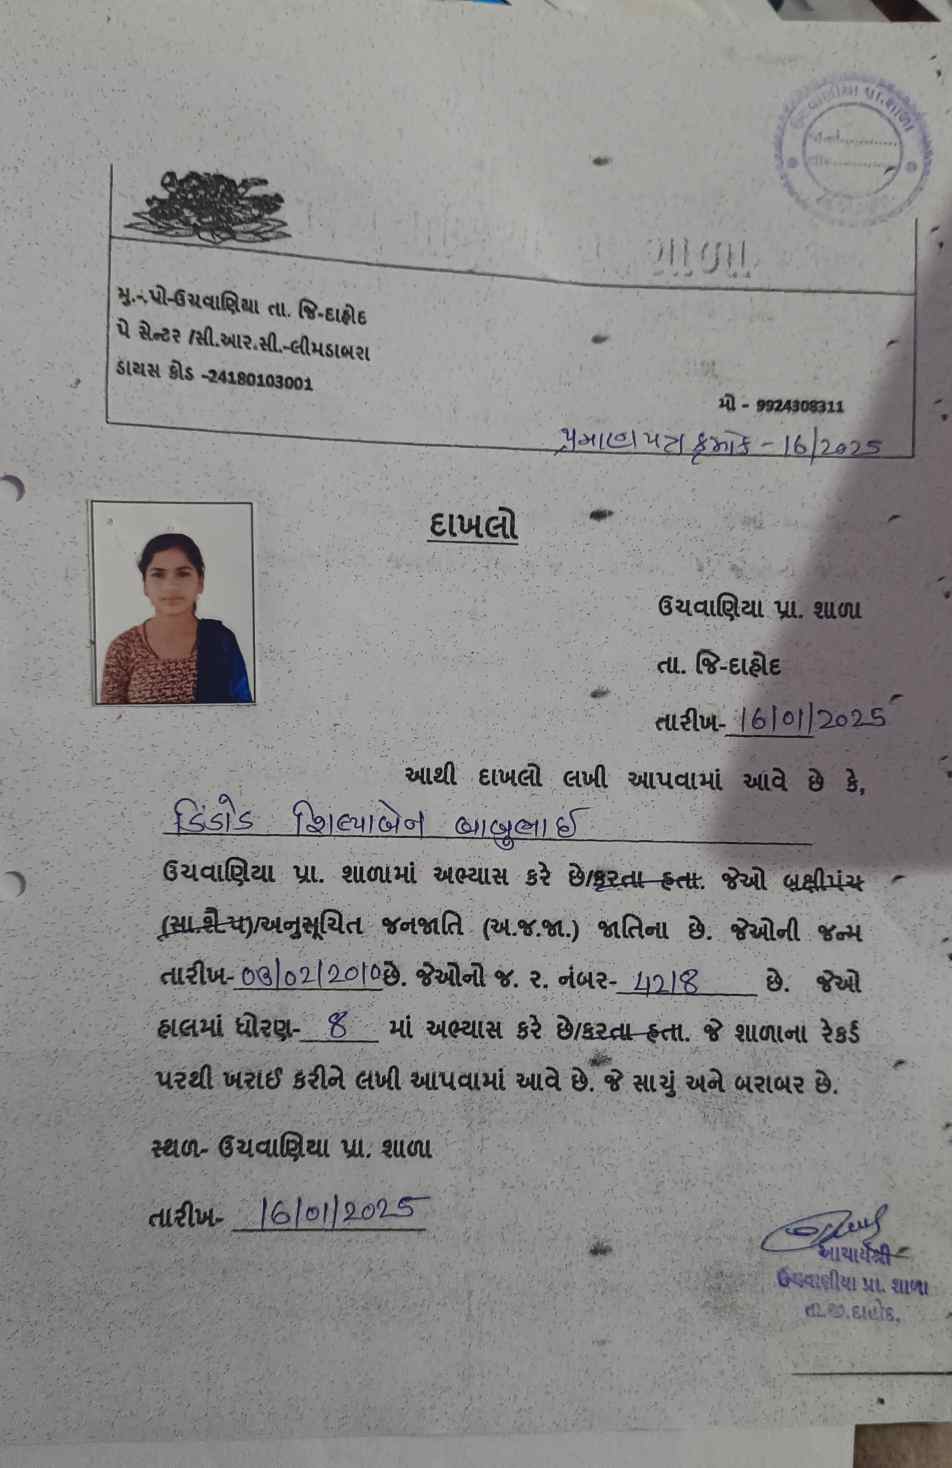 પ્રા.શાળા
શાળા
મુ.-.પો-ઉચવાણિયા તા. જિ-દાહોદ
પે સેન્ટર /સી.આર.સી.-લીમડાબરા
ડાયસ કોડ -24180103001
મો - 9924308311
પ્રમાણપત્ર ક્રમાંક - 16/2025
દાખલો
ઉચવાણિયા પ્રા. શાળા
તા. જિ-દાહોદ
તારીખ- 16/01/2025
આથી દાખલો લખી આપવામાં આવે છે કે,
ડિંડોડ શિલ્પાબેન બાબુભાઈ
ઉચવાણિયા પ્રા. શાળામાં અભ્યાસ કરે છે/કરતા હતા. જેઓ બક્ષીપંચ
(સા.શૈ.પ)/અનુસૂચિત જનજાતિ (અ.જ.જા.) જાતિના છે. જેઓની જન્મ
તારીખ- 03/02/2010 છે. જેઓનો જ. ર. નંબર- 4218 છે. જેઓ
હાલમાં ધોરણ- 8 માં અભ્યાસ કરે છે/કરતા હતા. જે શાળાના રેકર્ડ
પરથી ખરાઈ કરીને લખી આપવામાં આવે છે. જે સાચું અને બરાબર છે.
સ્થળ- ઉચવાણિયા પ્રા. શાળા
તારીખ- 16/01/2025
આચાર્યશ્રી
ઉચવાણીયા પ્રા. શાળા
તા.જી.દાહોદ.